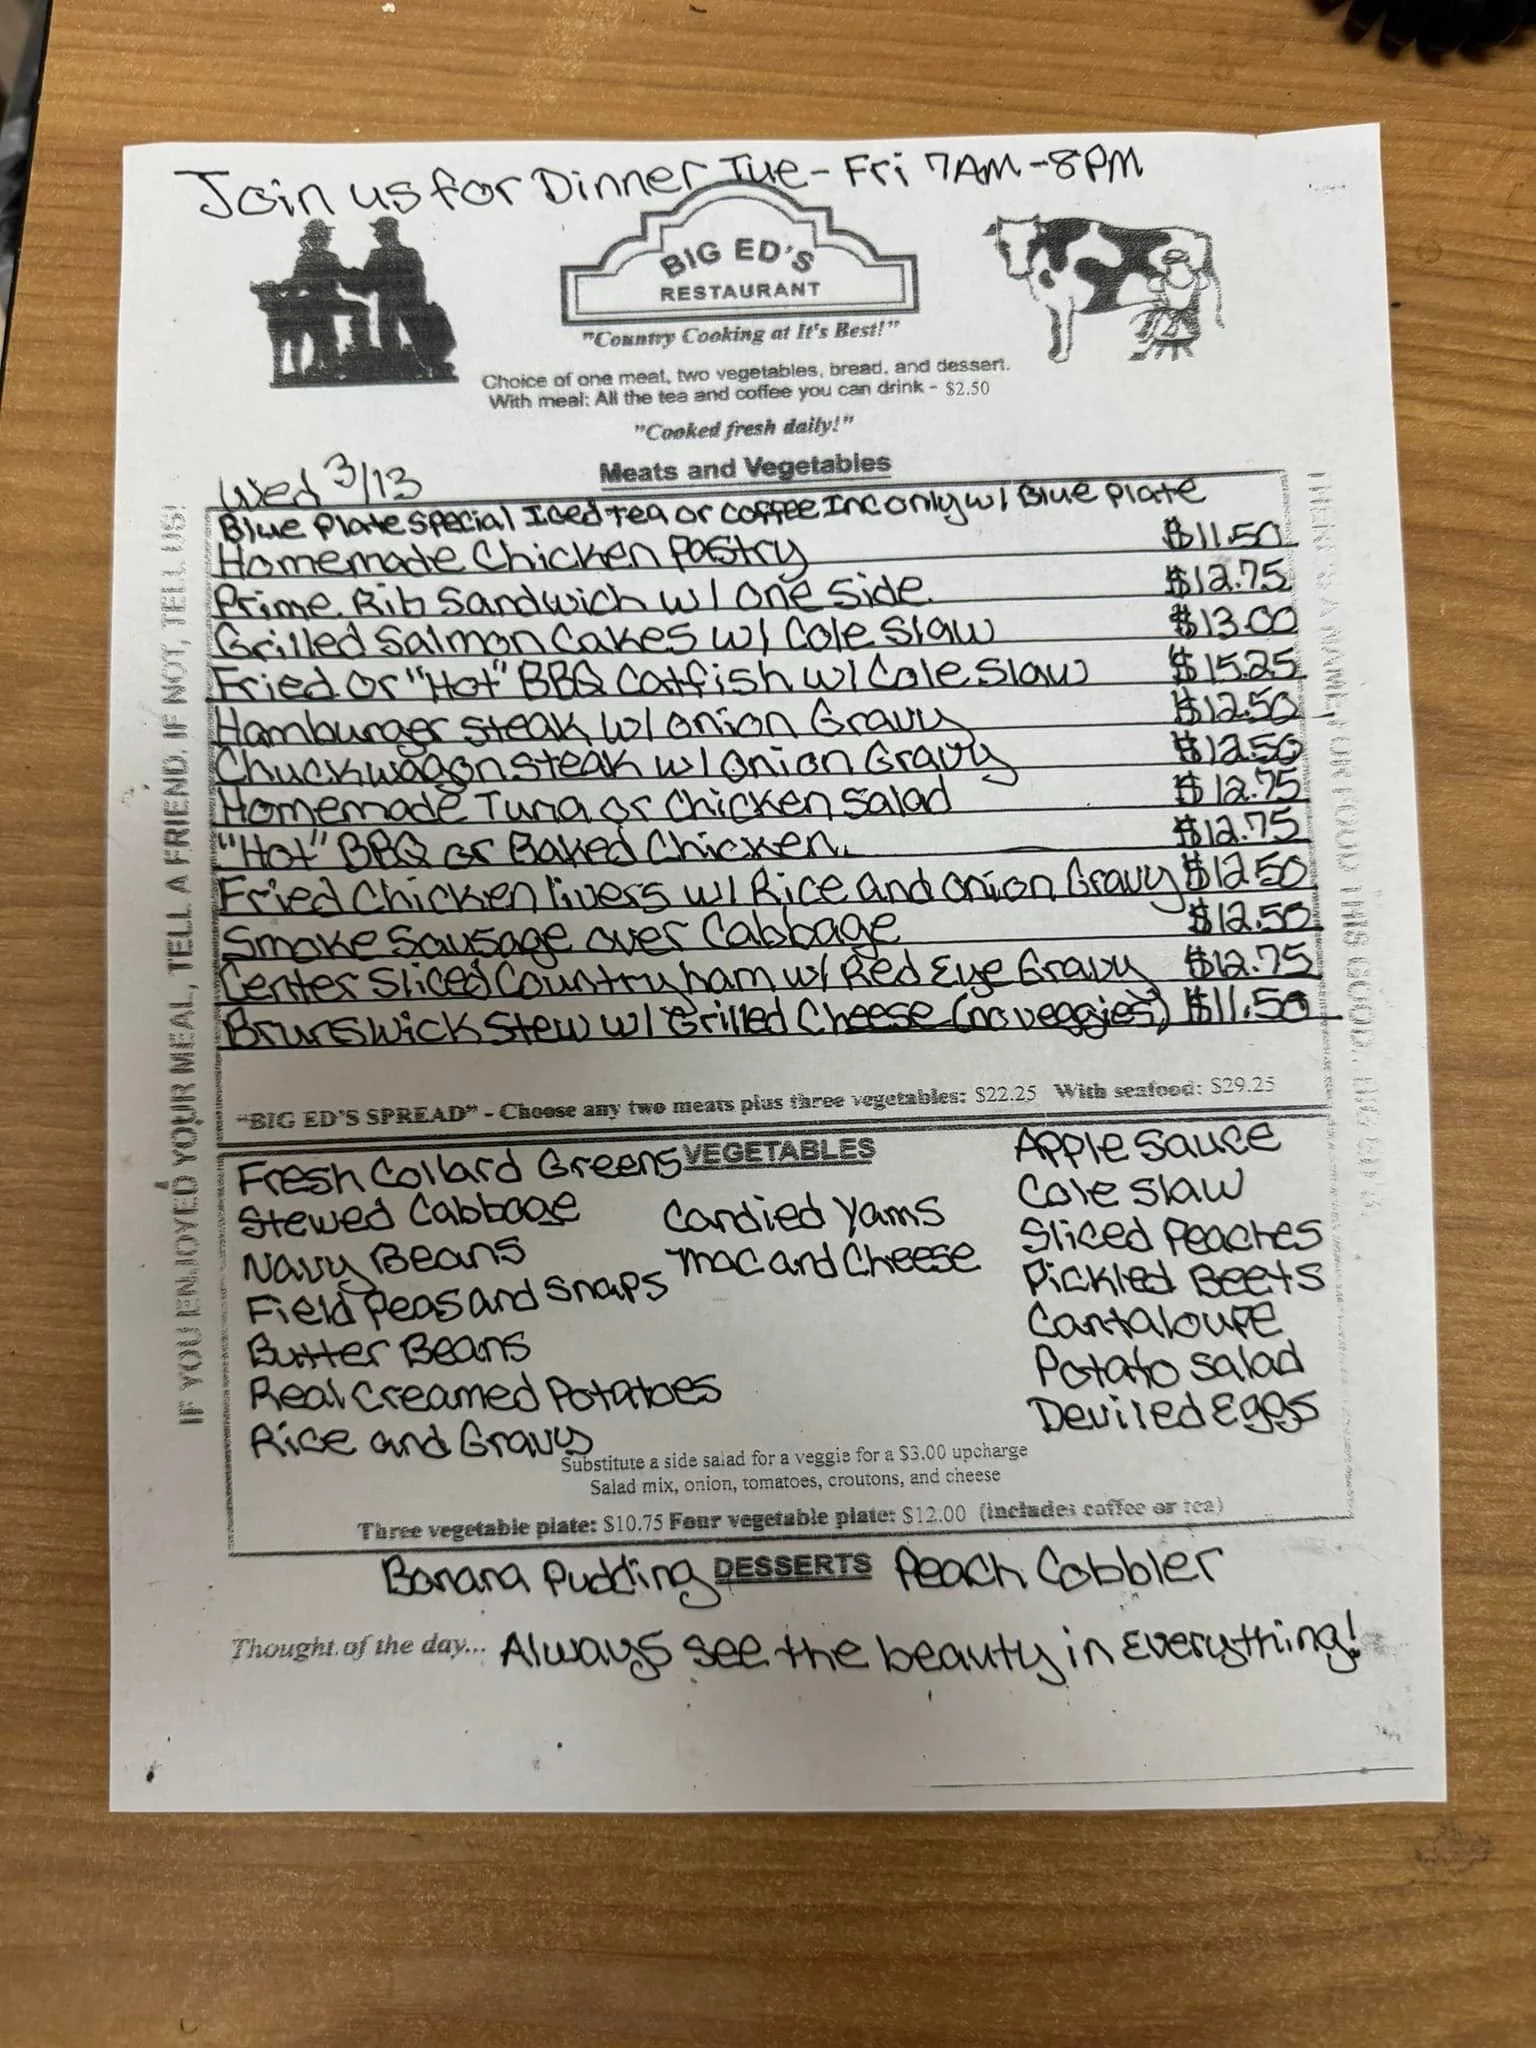 Join us for Dinner Tue - Fri 7AM - 8PM
BIG ED'S
RESTAURANT
"Country Cooking at It's Best!"
Choice of one meat, two vegetables, bread, and dessert.
With meal: All the tea and coffee you can drink - $2.50
"Cooked fresh daily!"
Wed 3/13
Meats and Vegetables
Blue Plate Special Iced Tea or Coffee Inc only w/ Blue Plate
Homemade Chicken Pastry $11.50
Prime Rib Sandwich w/ One Side $12.75
Grilled Salmon Cakes w/ Cole Slaw $13.00
Fried or "Hot" BBQ Catfish w/ Cole Slaw $15.25
Hamburger Steak w/ Onion Gravy $12.50
Chuckwagon Steak w/ Onion Gravy $12.50
Homemade Tuna or Chicken Salad $12.75
"Hot" BBQ or Baked Chicken $12.75
Fried Chicken livers w/ Rice and Onion Gravy $12.50
Smoke Sausage over Cabbage $12.50
Center Sliced Country ham w/ Red Eye Gravy $12.75
Brunswick Stew w/ Grilled Cheese (no veggies) $11.50
"BIG ED'S SPREAD" - Choose any two meats plus three vegetables: $22.25 With seafood: $29.25
VEGETABLES
Fresh Collard Greens
Stewed Cabbage
Navy Beans
Field Peas and Snaps
Butter Beans
Real Creamed Potatoes
Rice and Gravy
Candied Yams
Mac and Cheese
Apple Sauce
Cole Slaw
Sliced Peaches
Pickled Beets
Cantaloupe
Potato Salad
Deviled Eggs
Substitute a side salad for a veggie for a $3.00 upcharge
Salad mix, onion, tomatoes, croutons, and cheese
Three vegetable plate: $10.75 Four vegetable plate: $12.00 (includes coffee or tea)
Banana Pudding DESSERTS Peach Cobbler
Thought of the day... Always see the beauty in Everything!
IF YOU ENJOYED YOUR MEAL, TELL A FRIEND. IF NOT, TELL US!
FOOD THIS GOOD", BIG ED'S